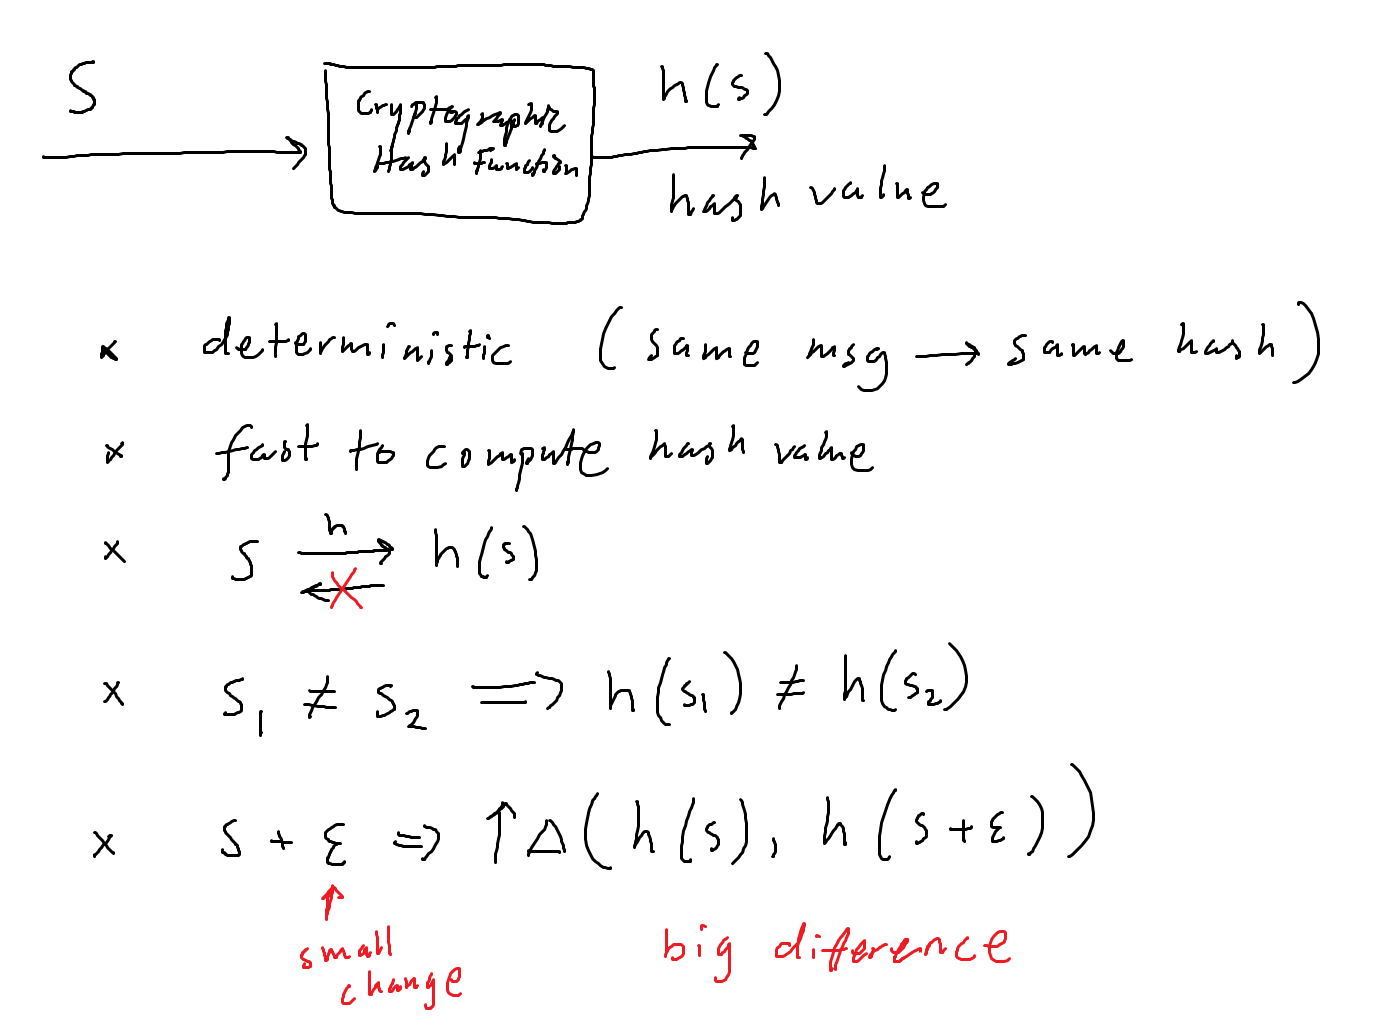 S
Cryptographic
Hash Function
h(s)
hash value
x deterministic (same msg → same hash)
x fast to compute hash value
x S h→ ← X h(s)
x S₁ ≠ S₂ => h(s₁) ≠ h(s₂)
x S + ε => ↑Δ(h(s), h(s+ε))
↑
small
change
big diference